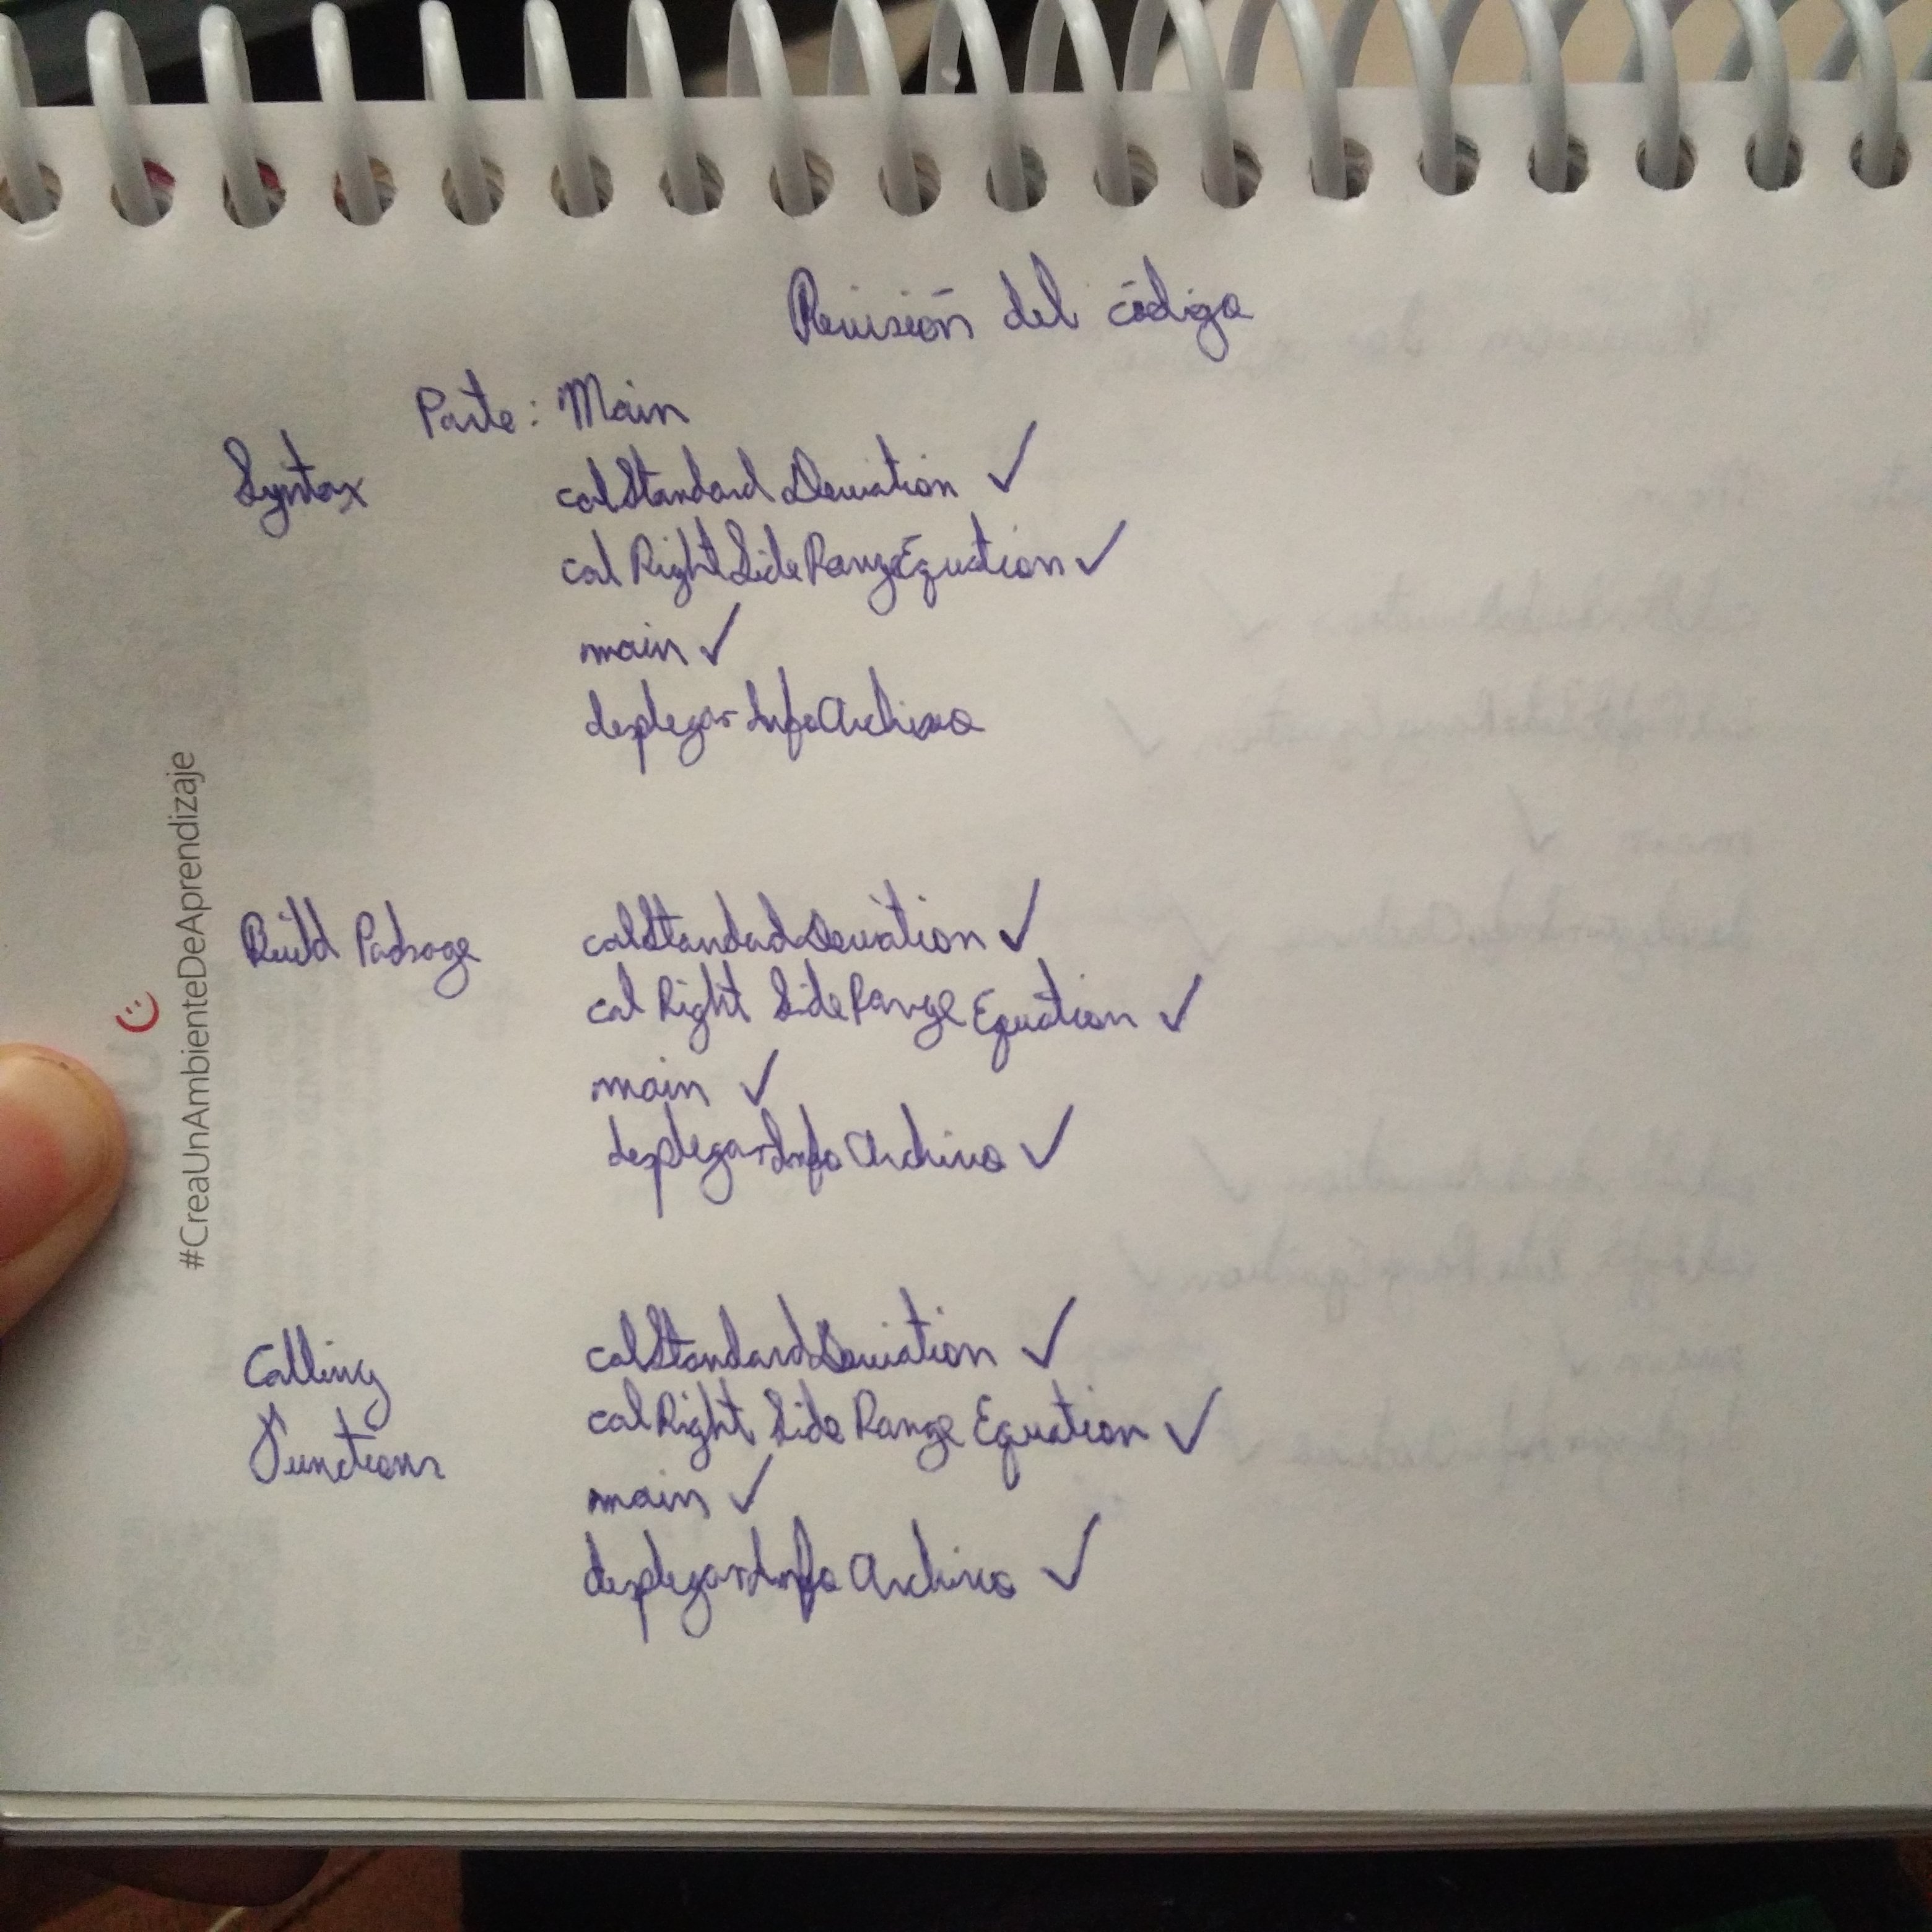 Revisión del código
Parte: Main
Syntax calStandardDeviation ✓
calRightSideRangeEquation ✓
main ✓
desplegarInfoArchivo
Build Package calStandardDeviation ✓
calRight SideRangeEquation ✓
main ✓
desplegarInfoArchivo ✓
Calling calStandardDeviation ✓
Functions calRight Side Range Equation ✓
main ✓
desplegarInfo Archivo ✓
#CreaUnAmbienteDeAprendizaje